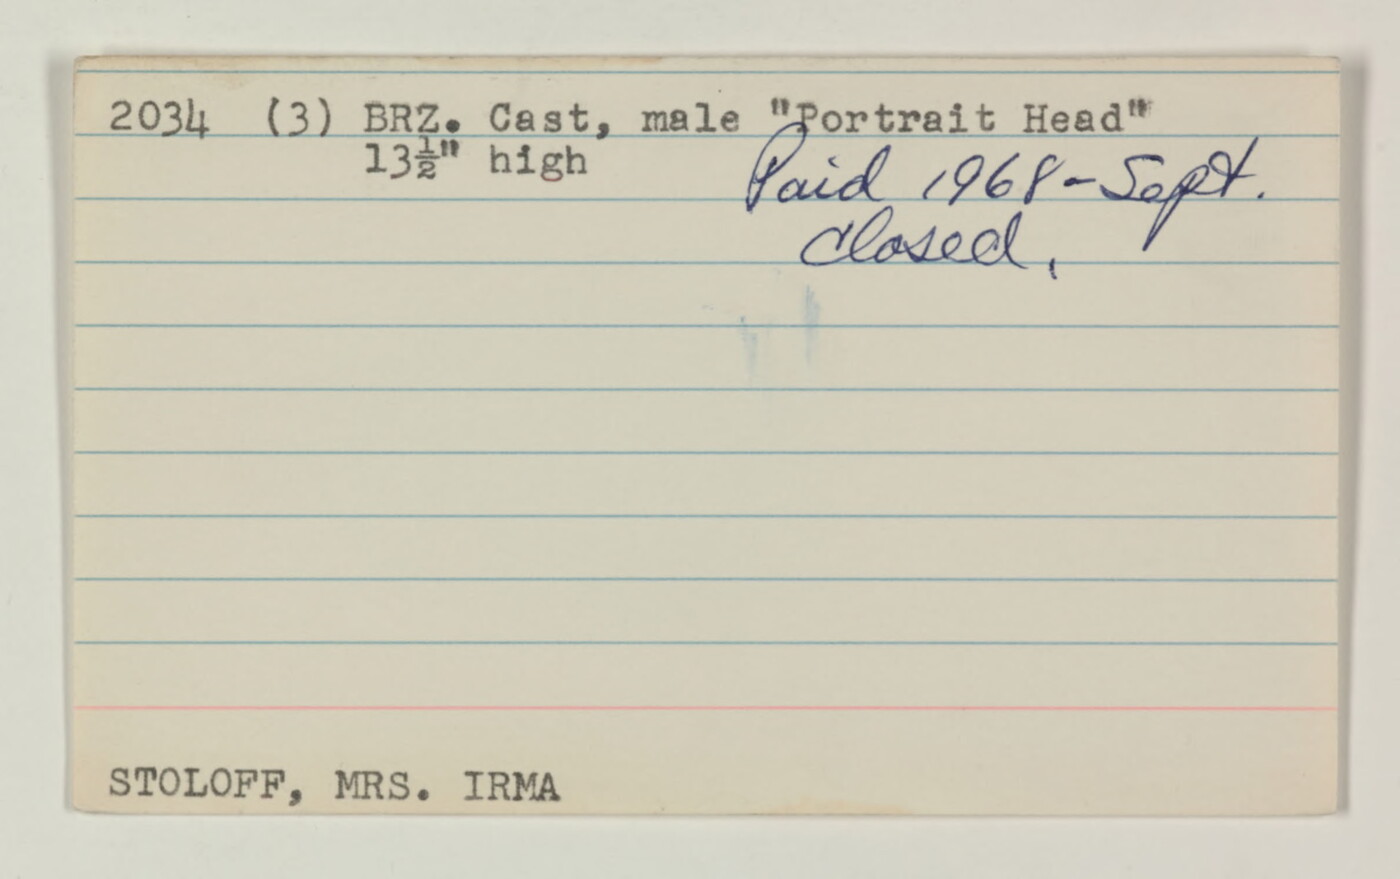 2034 (3) BRZ. Cast, male "Portrait Head"
13½" high
Paid 1968 - Sept.
Closed.
STOLOFF, MRS. IRMA